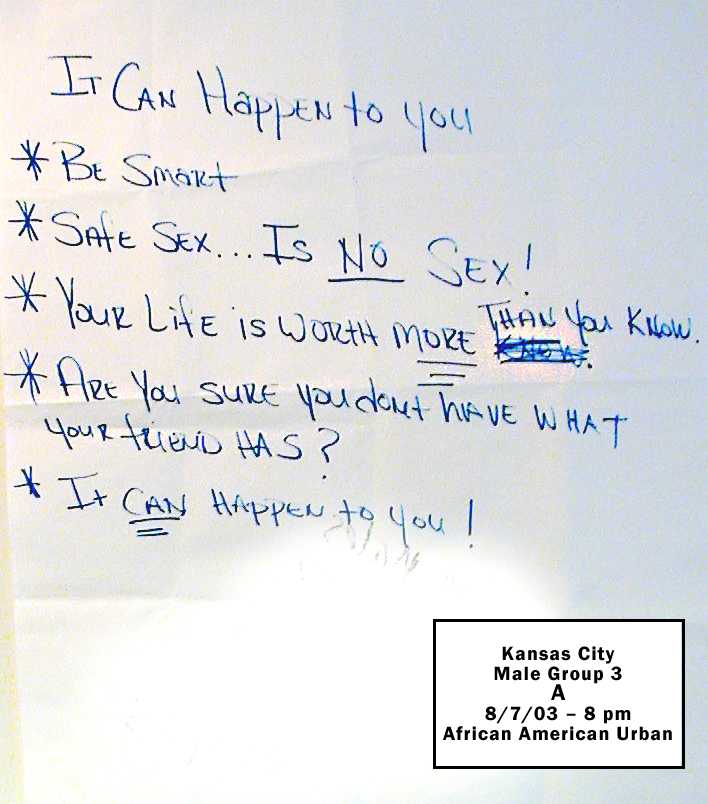 It Can Happen to you
* Be Smart
* Safe Sex... Is No Sex!
* Your Life is worth more Than you know.
* Are you sure you dont have what
your friend has?
* It Can happen to you!
Kansas City
Male Group 3
A
8/7/03 – 8 pm
African American Urban